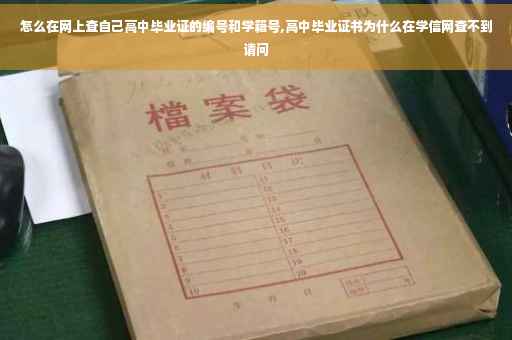 怎么在网上查自己高中毕业证的编号和学籍号,高中毕业证书为什么在学信网查不到
请问
檔案袋
材料目次
1
2
3
4
5
6
7
8
9
10
11
12
13
14
15
16
17
18
19
20
年 月 日